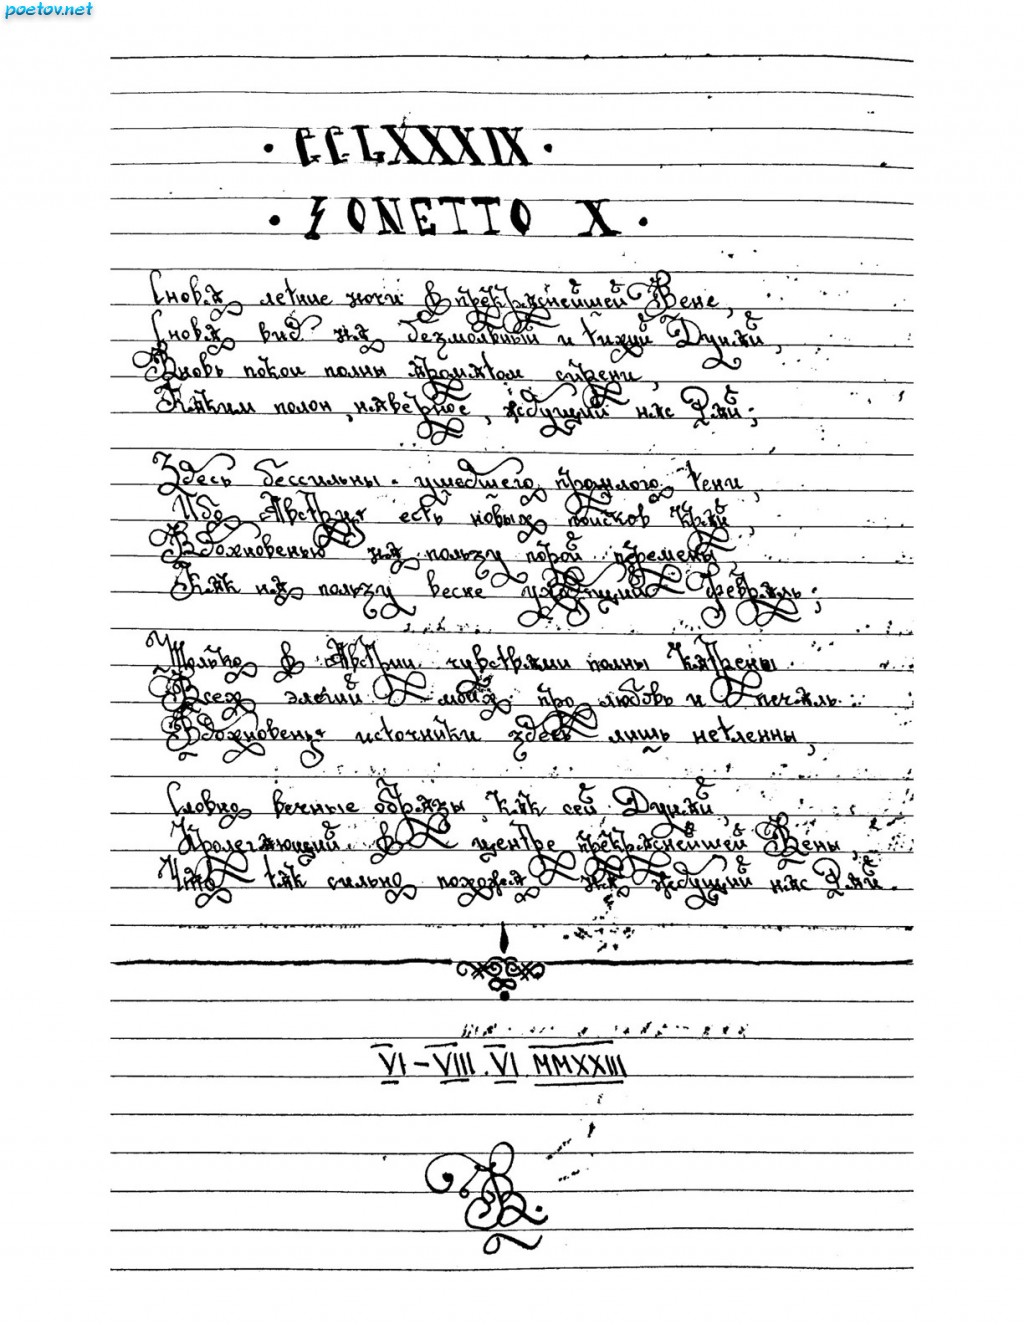 poetov.net
· CCLXXXIX ·
· SONETTO X ·
Снова летние ночи в прекраснейшей Вене,
Снова вид на безмолвный и тихий Дунай,
Вновь покои полны ароматом сирени,
Каким полон, наверное, ждущий нас Рай;
Здесь бессильны ушедшего прошлого тени,
Ибо Австрия есть новых поисков край,
Вдохновенью на пользу порой перемены
Как на пользу весне уходящий февраль;
Только в Австрии чувствами полны катрены
Всех элегий моих про любовь и печаль.
Вдохновенья источники здесь лишь нетленны,
Словно вечные образы, как сей Дунай,
Пролегающий в центре прекраснейшей Вены,
Что так сильно похожа на ждущий нас Рай.
VI – VIII . VI MMXXIII